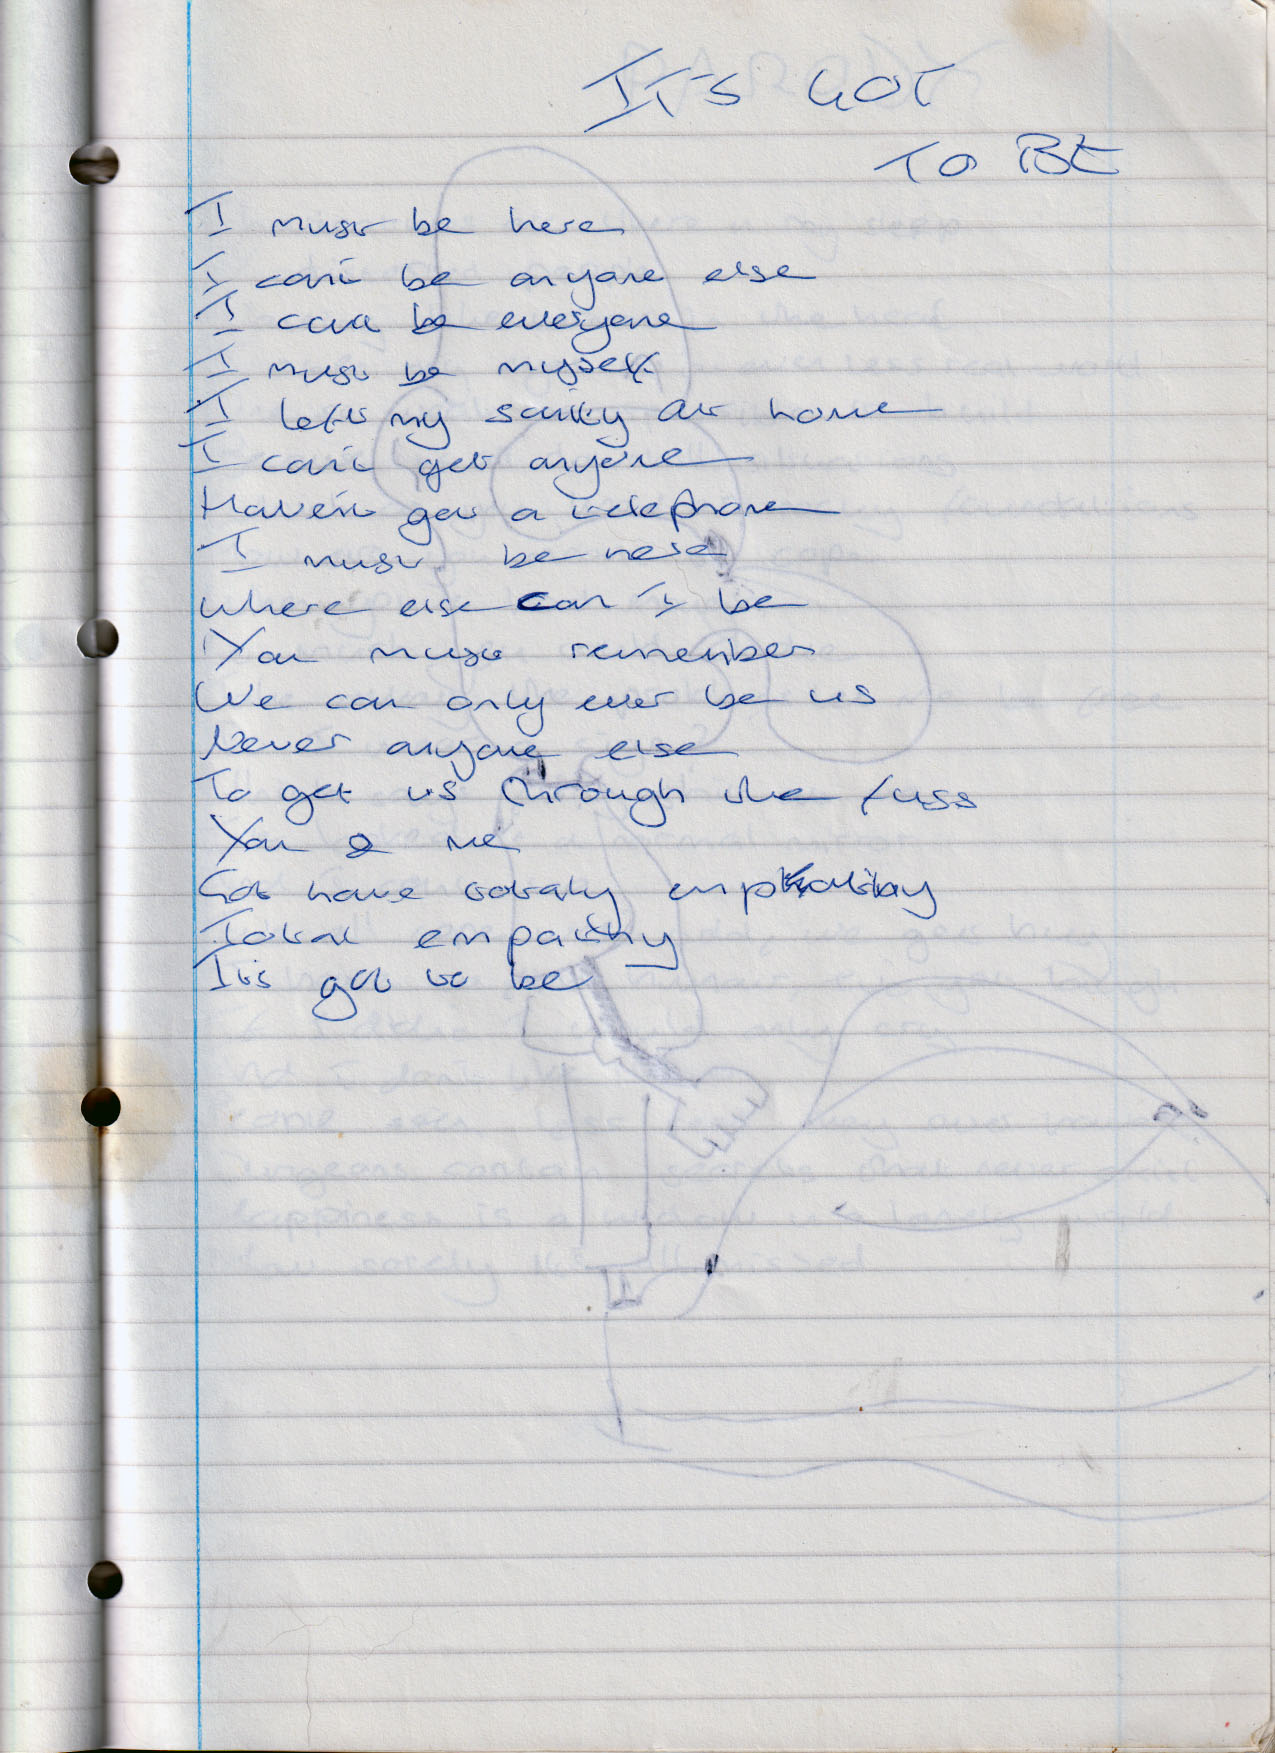 IT'S GOT
TO BE
I must be here
I can't be anyone else
I can't be everyone
I must be myself
I left my sanity at home
I can't get anyone
Haven't got a telephone
I must be here
Where else can I be
You must remember
We can only ever be us
Never anyone else
To get us through the fuss
You & me
Got have totaly
Total empathy
It's got to be